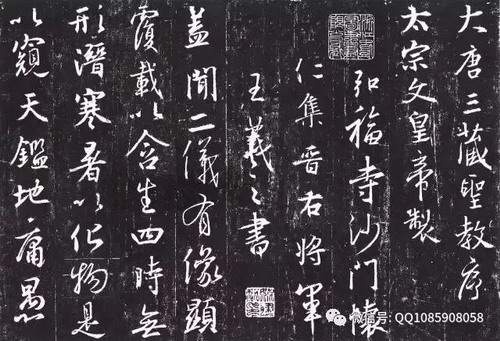 大唐三藏聖教序
太宗文皇帝製
弘福寺沙門懷
仁集晉右將軍
王羲之書
蓋聞二儀有像顯
覆載以含生四時無
形潛寒暑以化物是
以窺天鑑地庸愚
微信号: QQ1085908058